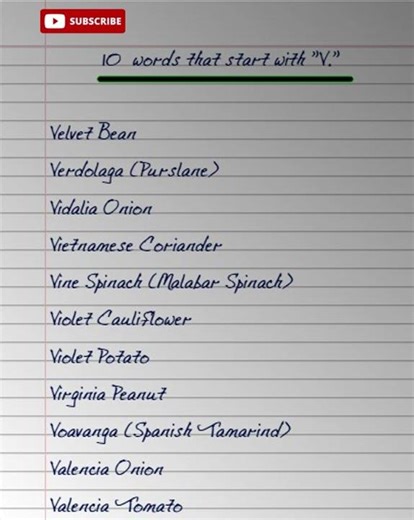 SUBSCRIBE
10 words that start with "V."
Velvet Bean
Verdolaga (Purslane)
Vidalia Onion
Vietnamese Coriander
Vine Spinach (Malabar Spinach)
Violet Cauliflower
Violet Potato
Virginia Peanut
Voavanga (Spanish Tamarind)
Valencia Onion
Valencia Tomato